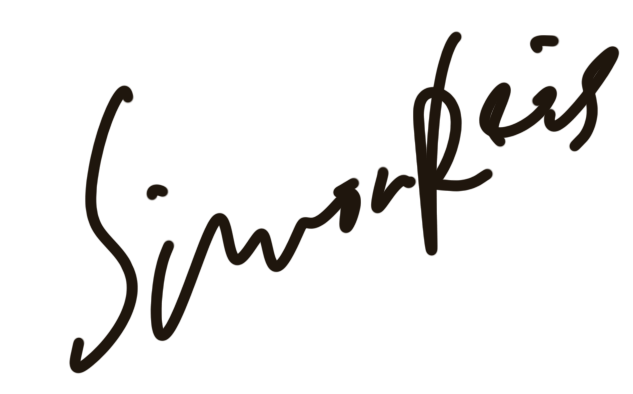 Simon Reis